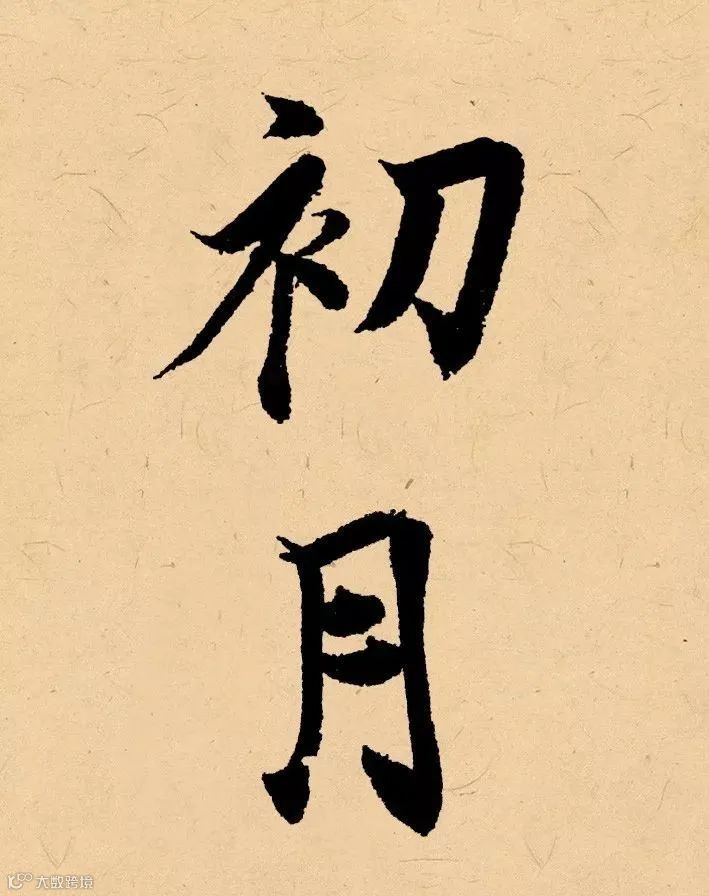 初月
大数跨境